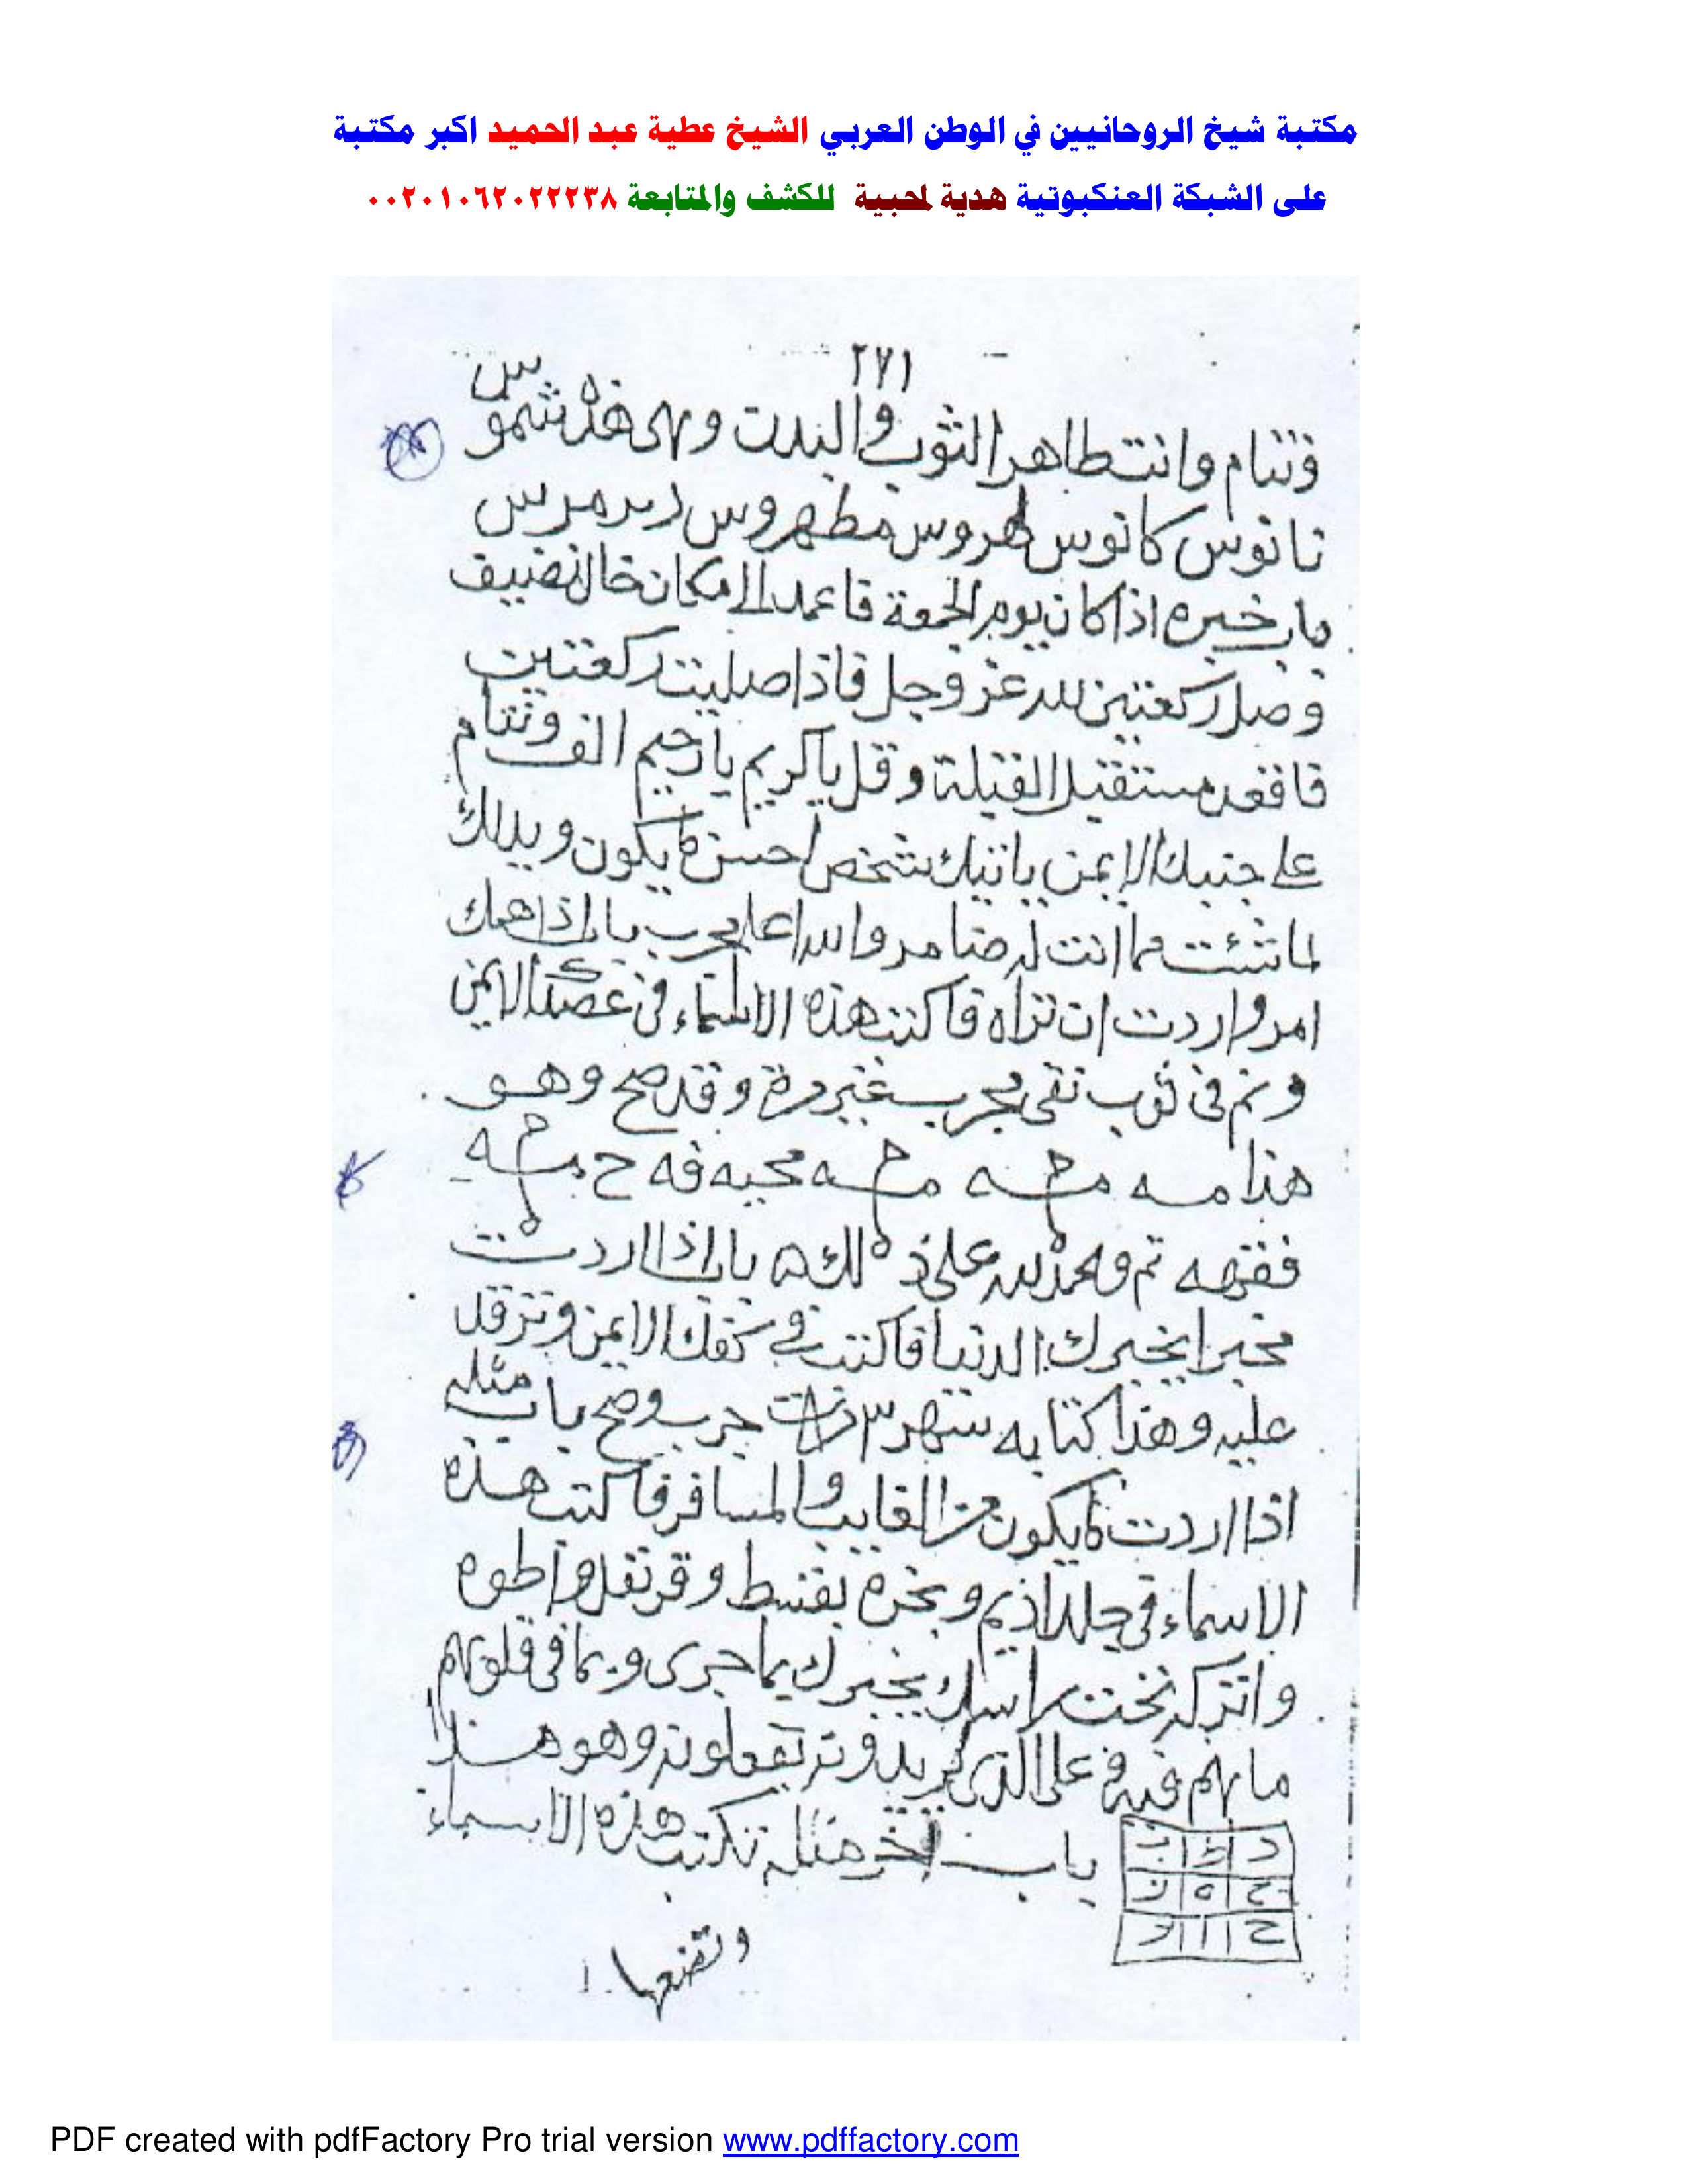 مكتبة شيخ الروحانيين في الوطن العربي الشيخ عطية عبد الحميد اكبر مكتبة
على الشبكة العنكبوتية هدية لمحبية للكشف والمتابعة ٠٠٢٠١٠٦٢٠٢٢٢٣٨
٢٧١
وتنام وانت طاهر الثوب والبدن وهى هذه شموس
نانوس كانوس طهروس مطهروس
باب خيره اذا كان يوم الجمعة فاعمد الى مكان خال نضيف
وصل ركعتين لله عز وجل فاذا صليت ركعتين
فاقعد مستقبل القبلة وقل يا كريم يا رحيم الف وتنام
على جنبك الايمن ياتيك شخص احسن ما يكون ويدلك
لما شئت مما انت له ضامر والله اعلم مجرب باب اذا همك
امر واردت ان تراه فاكتب هذه الاسماء فى عضدك الايمن
ونم فى ثوب نقى مجرب غير مرة وقد صح وهو
هذا مه مه مه محبه فه ح
ففهه تم والحمد لله على ذلك باب اذا اردت
مخبرا يخبرك الدنيا فاكتب فى كفك الايمن وترقد
عليه وهذا كتابه شهر ٣ جرب وصح باب مثله
اذا اردت ما يكون من الغايب والمسافر فاكتب هذه
الاسماء فى جلد اديم وبخره بقسط وقرنفل واطوه
واتركه تحت راسك يخبرك بما جرى وبما فى قلوبهم
ما هم فيه وعلى الذى يريدونه يفعلونه وهو هذا
باب اخر مثله تكتب هذه الاسماء
وتضعها
PDF created with pdfFactory Pro trial version www.pdffactory.com